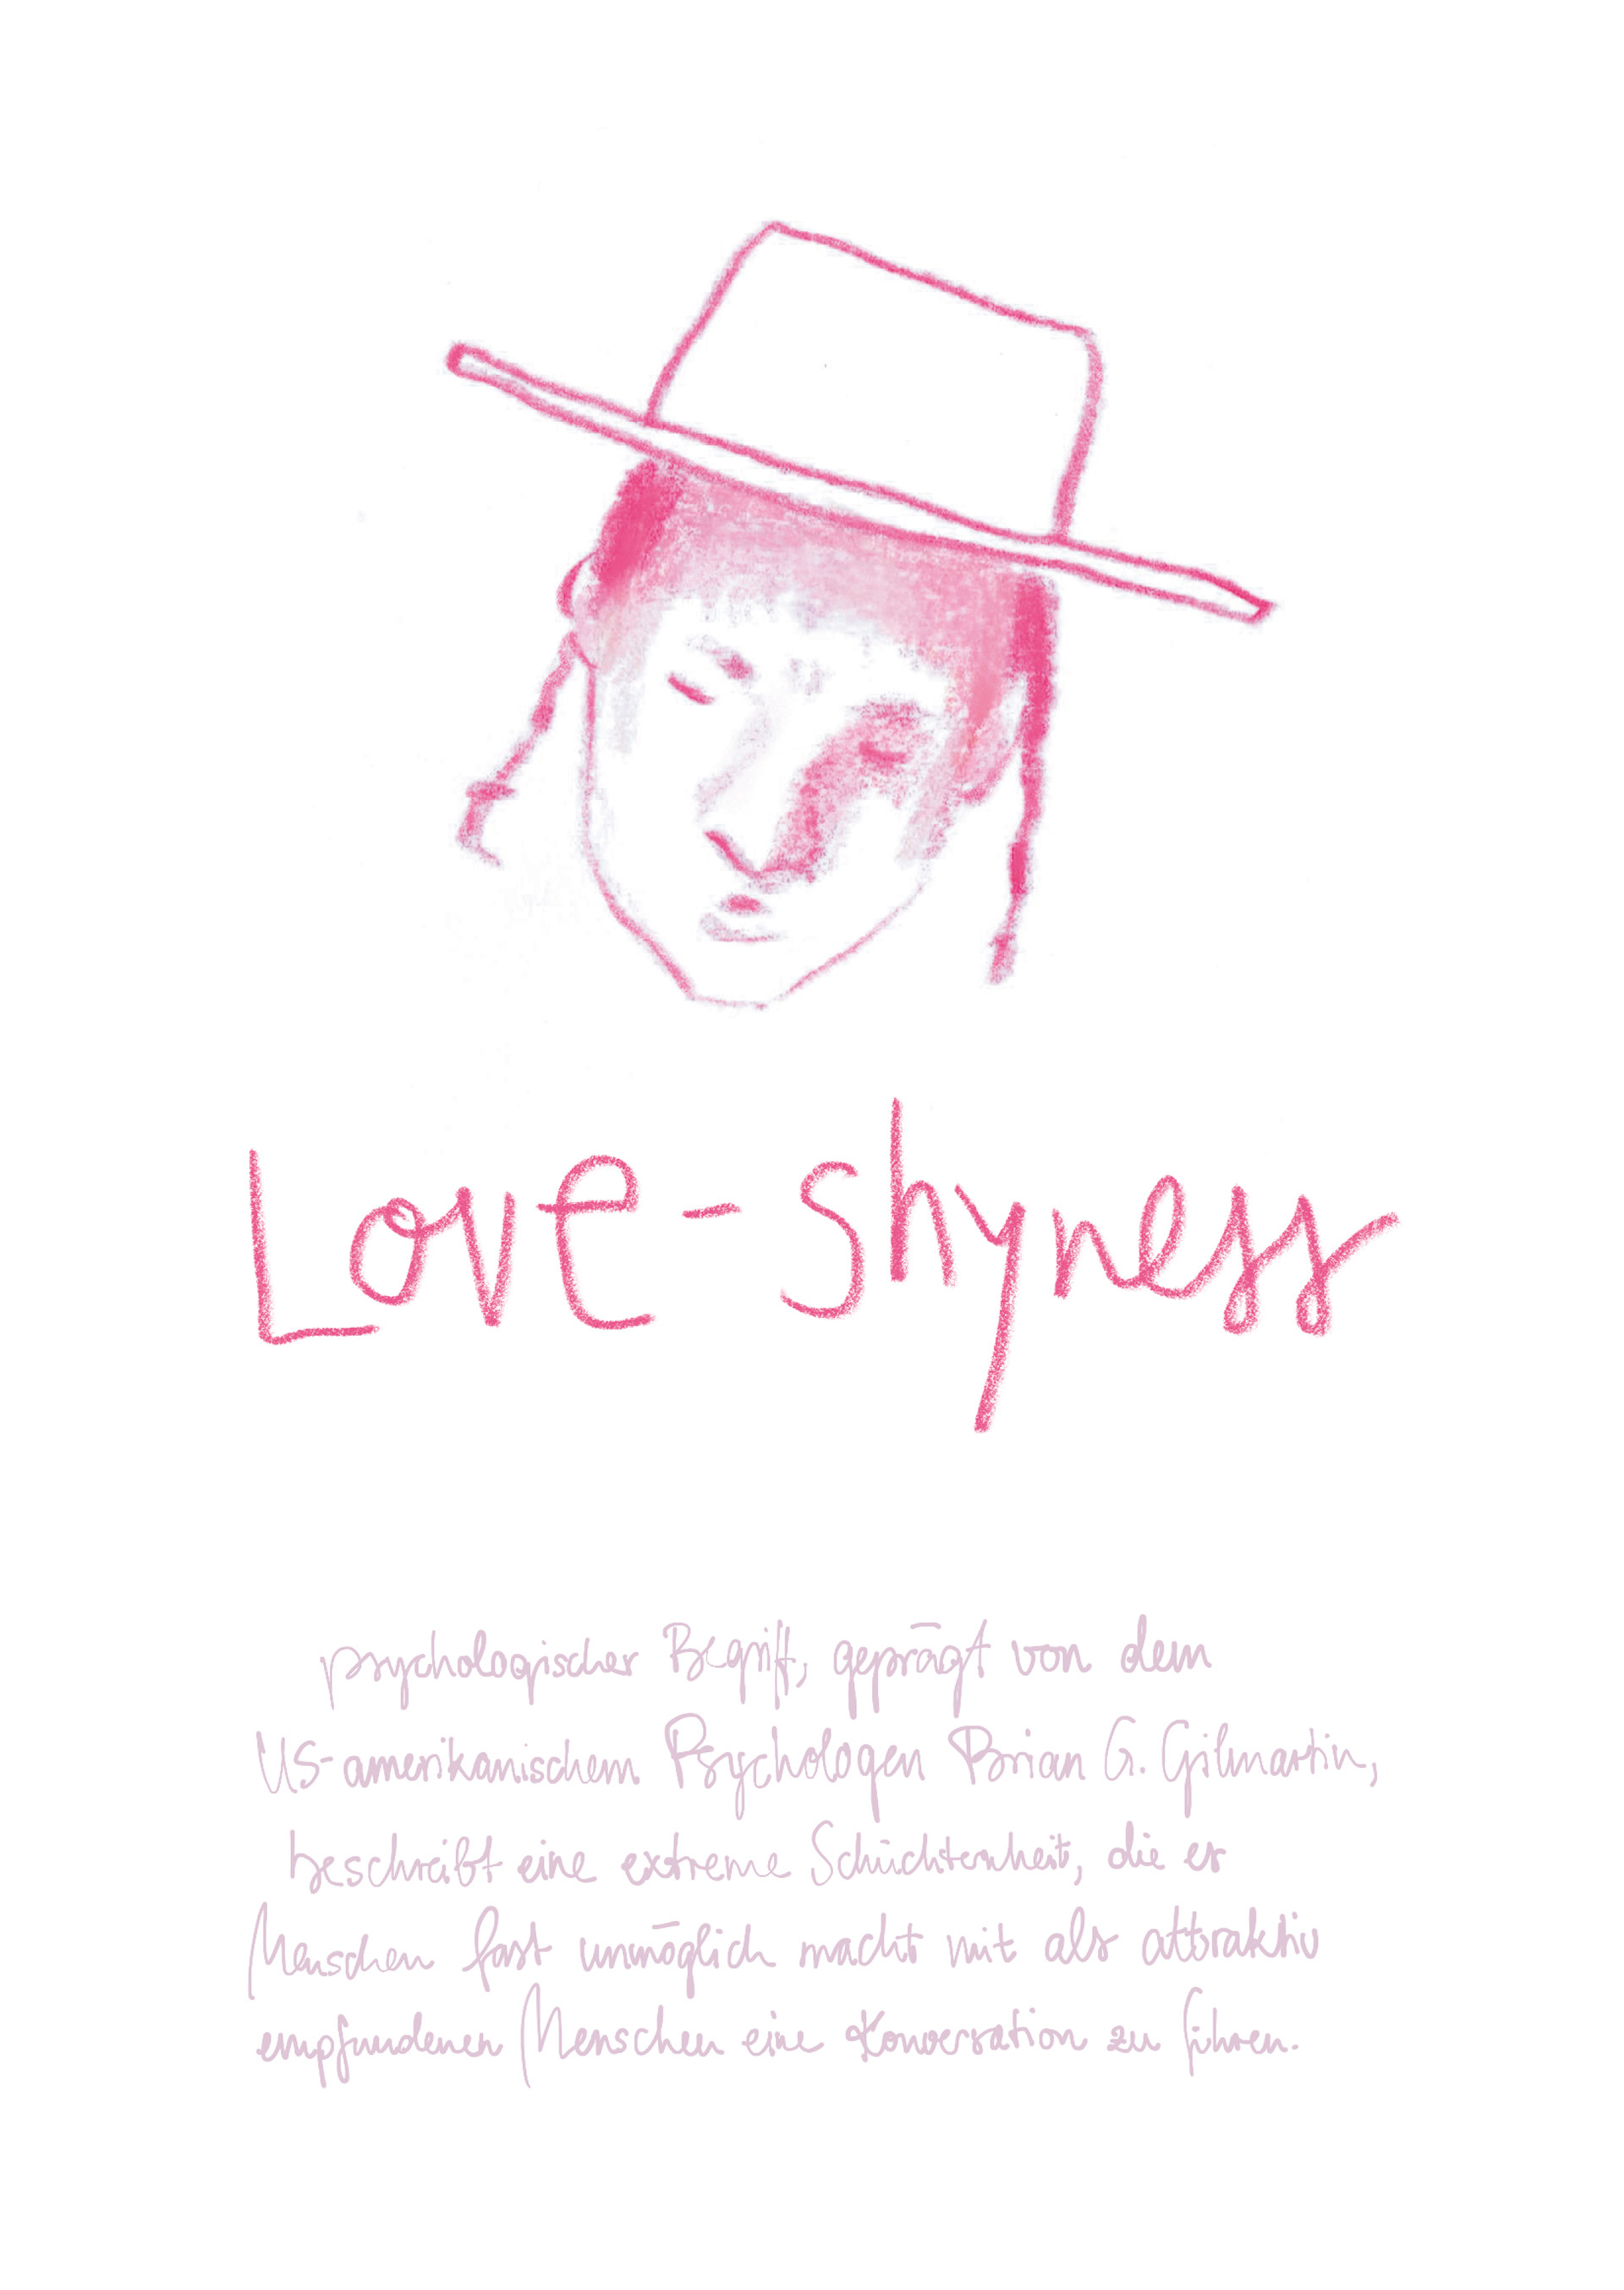 Love-shyness
psychologischer Begriff, geprägt von dem
US-amerikanischem Psychologen Brian G. Gilmartin,
beschreibt eine extreme Schüchternheit, die er
Menschen fast unmöglich macht mit als attraktiv
empfundenen Menschen eine Konversation zu führen.